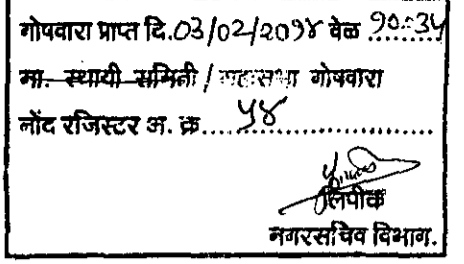 गोषवारा प्राप्त दि.०३/०२/२०१४ वेळ १०:३५
मा. स्थायी समिती / महासभा गोषवारा
नोंद रजिस्टर अ. क्र.... ५४ ..............
लिपीक
नगरसचिव विभाग.